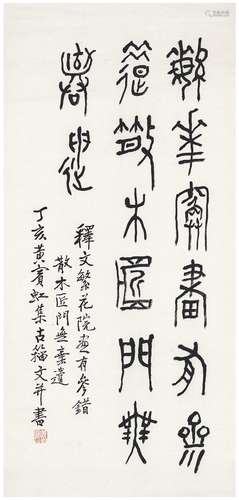 緐華院畫有參
錯散木匠門無
棄遺
釋文繁花院画有參錯
散木匠門無棄遺
丁亥黃賓虹集古籀文并書